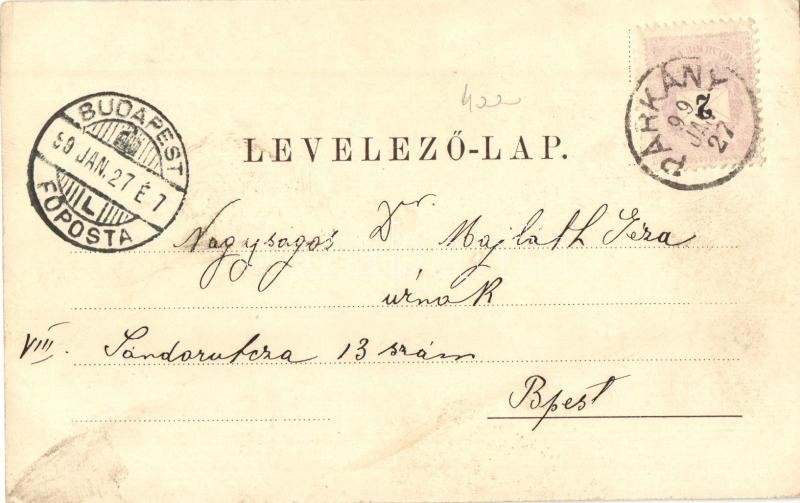 BUDAPEST
99 JAN. 27 É 7
L
FŐPOSTA
PÁRKÁNY
99
JAN
27
2
422
LEVELEZŐ-LAP.
Nagyságos Dr. Majláth Géza
úrnak
VIII. Sándorutcza 13 szám
Bpest